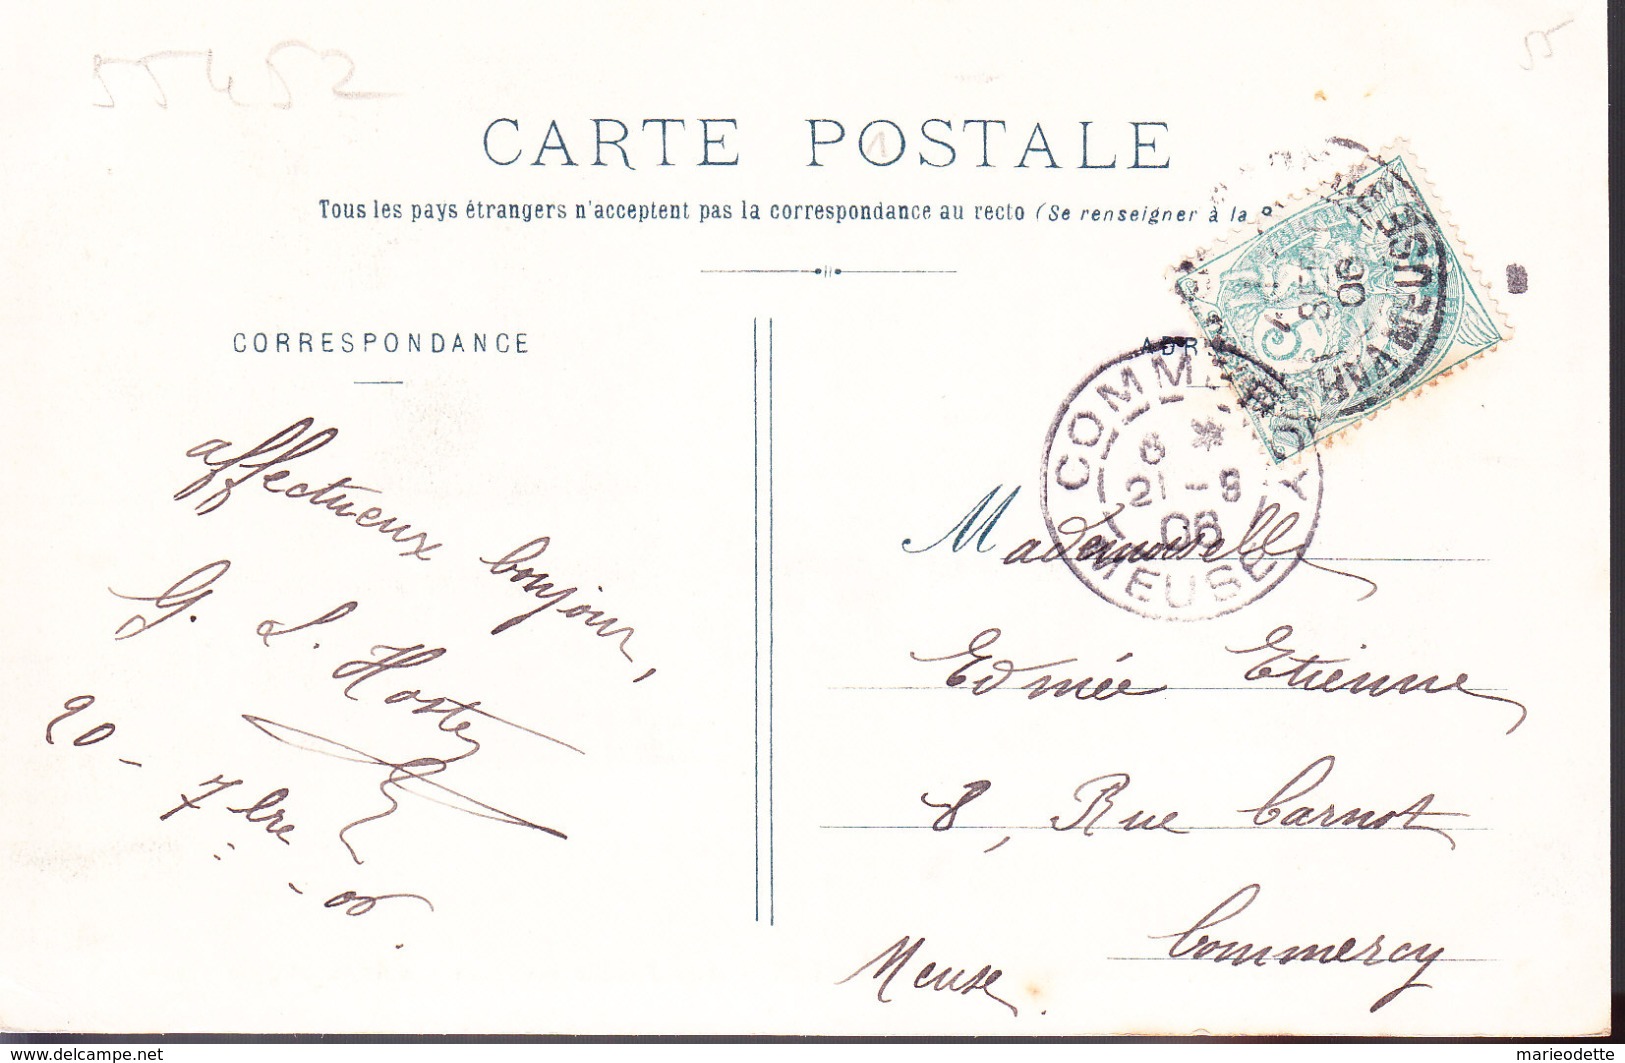 55452
55
CARTE POSTALE
Tous les pays étrangers n'acceptent pas la correspondance au recto (Se renseigner à la
CORRESPONDANCE
ADR
affectueux bonjour,
G. L. Hoste
20 - 7bre - 06.
COMM Y
6 *
21 - 9
06
MEUSE
MEUSE
SEP
06
5
Mademoiselle
Edmée Etienne
8, Rue Carnot
Commercy
Meuse.
www.delcampe.net
marieodette